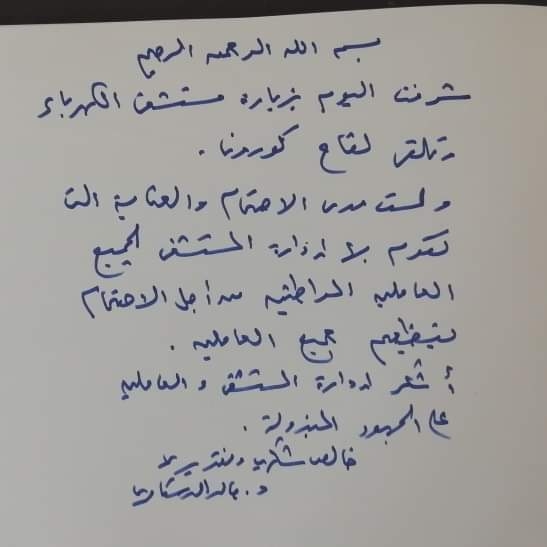 بسم الله الرحمن الرحيم
شرفت اليوم بزيارة مستشفى الكهرباء
وتلقى لقاح كورونا .
ولمست مدى الاهتمام والعناية التى
تقوم بها إدارة المستشفى لجميع
العاملين المواطنين من أجل الاهتمام
لتطعيم جميع العاملين .
أشكر إدارة المستشفى والعاملين
على الجهود المبذولة .
خالص شكرى وتقديرى
د.